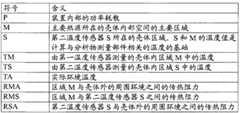 符号 含义
P 装置内部的功率耗散
M 主要热源所在的壳体内部空间的主要区域
S 第二温度传感器 S 所在的壳体区域，S 和 M 的温度值是
计算与分析物测量部件相关的温度的基础
TM 由第一温度传感器测量的壳体内区域 M 中的温度
TS 由第二温度传感器测量的壳体内区域 S 中的温度
TA 实际环境温度
RMA 区域 M 与壳体外的周围环境之间的传热阻力
RMS 区域 M 与第二温度传感器 S 之间的传热阻力
RSA 第二温度传感器 S 与壳体外的周围环境之间的传热阻力